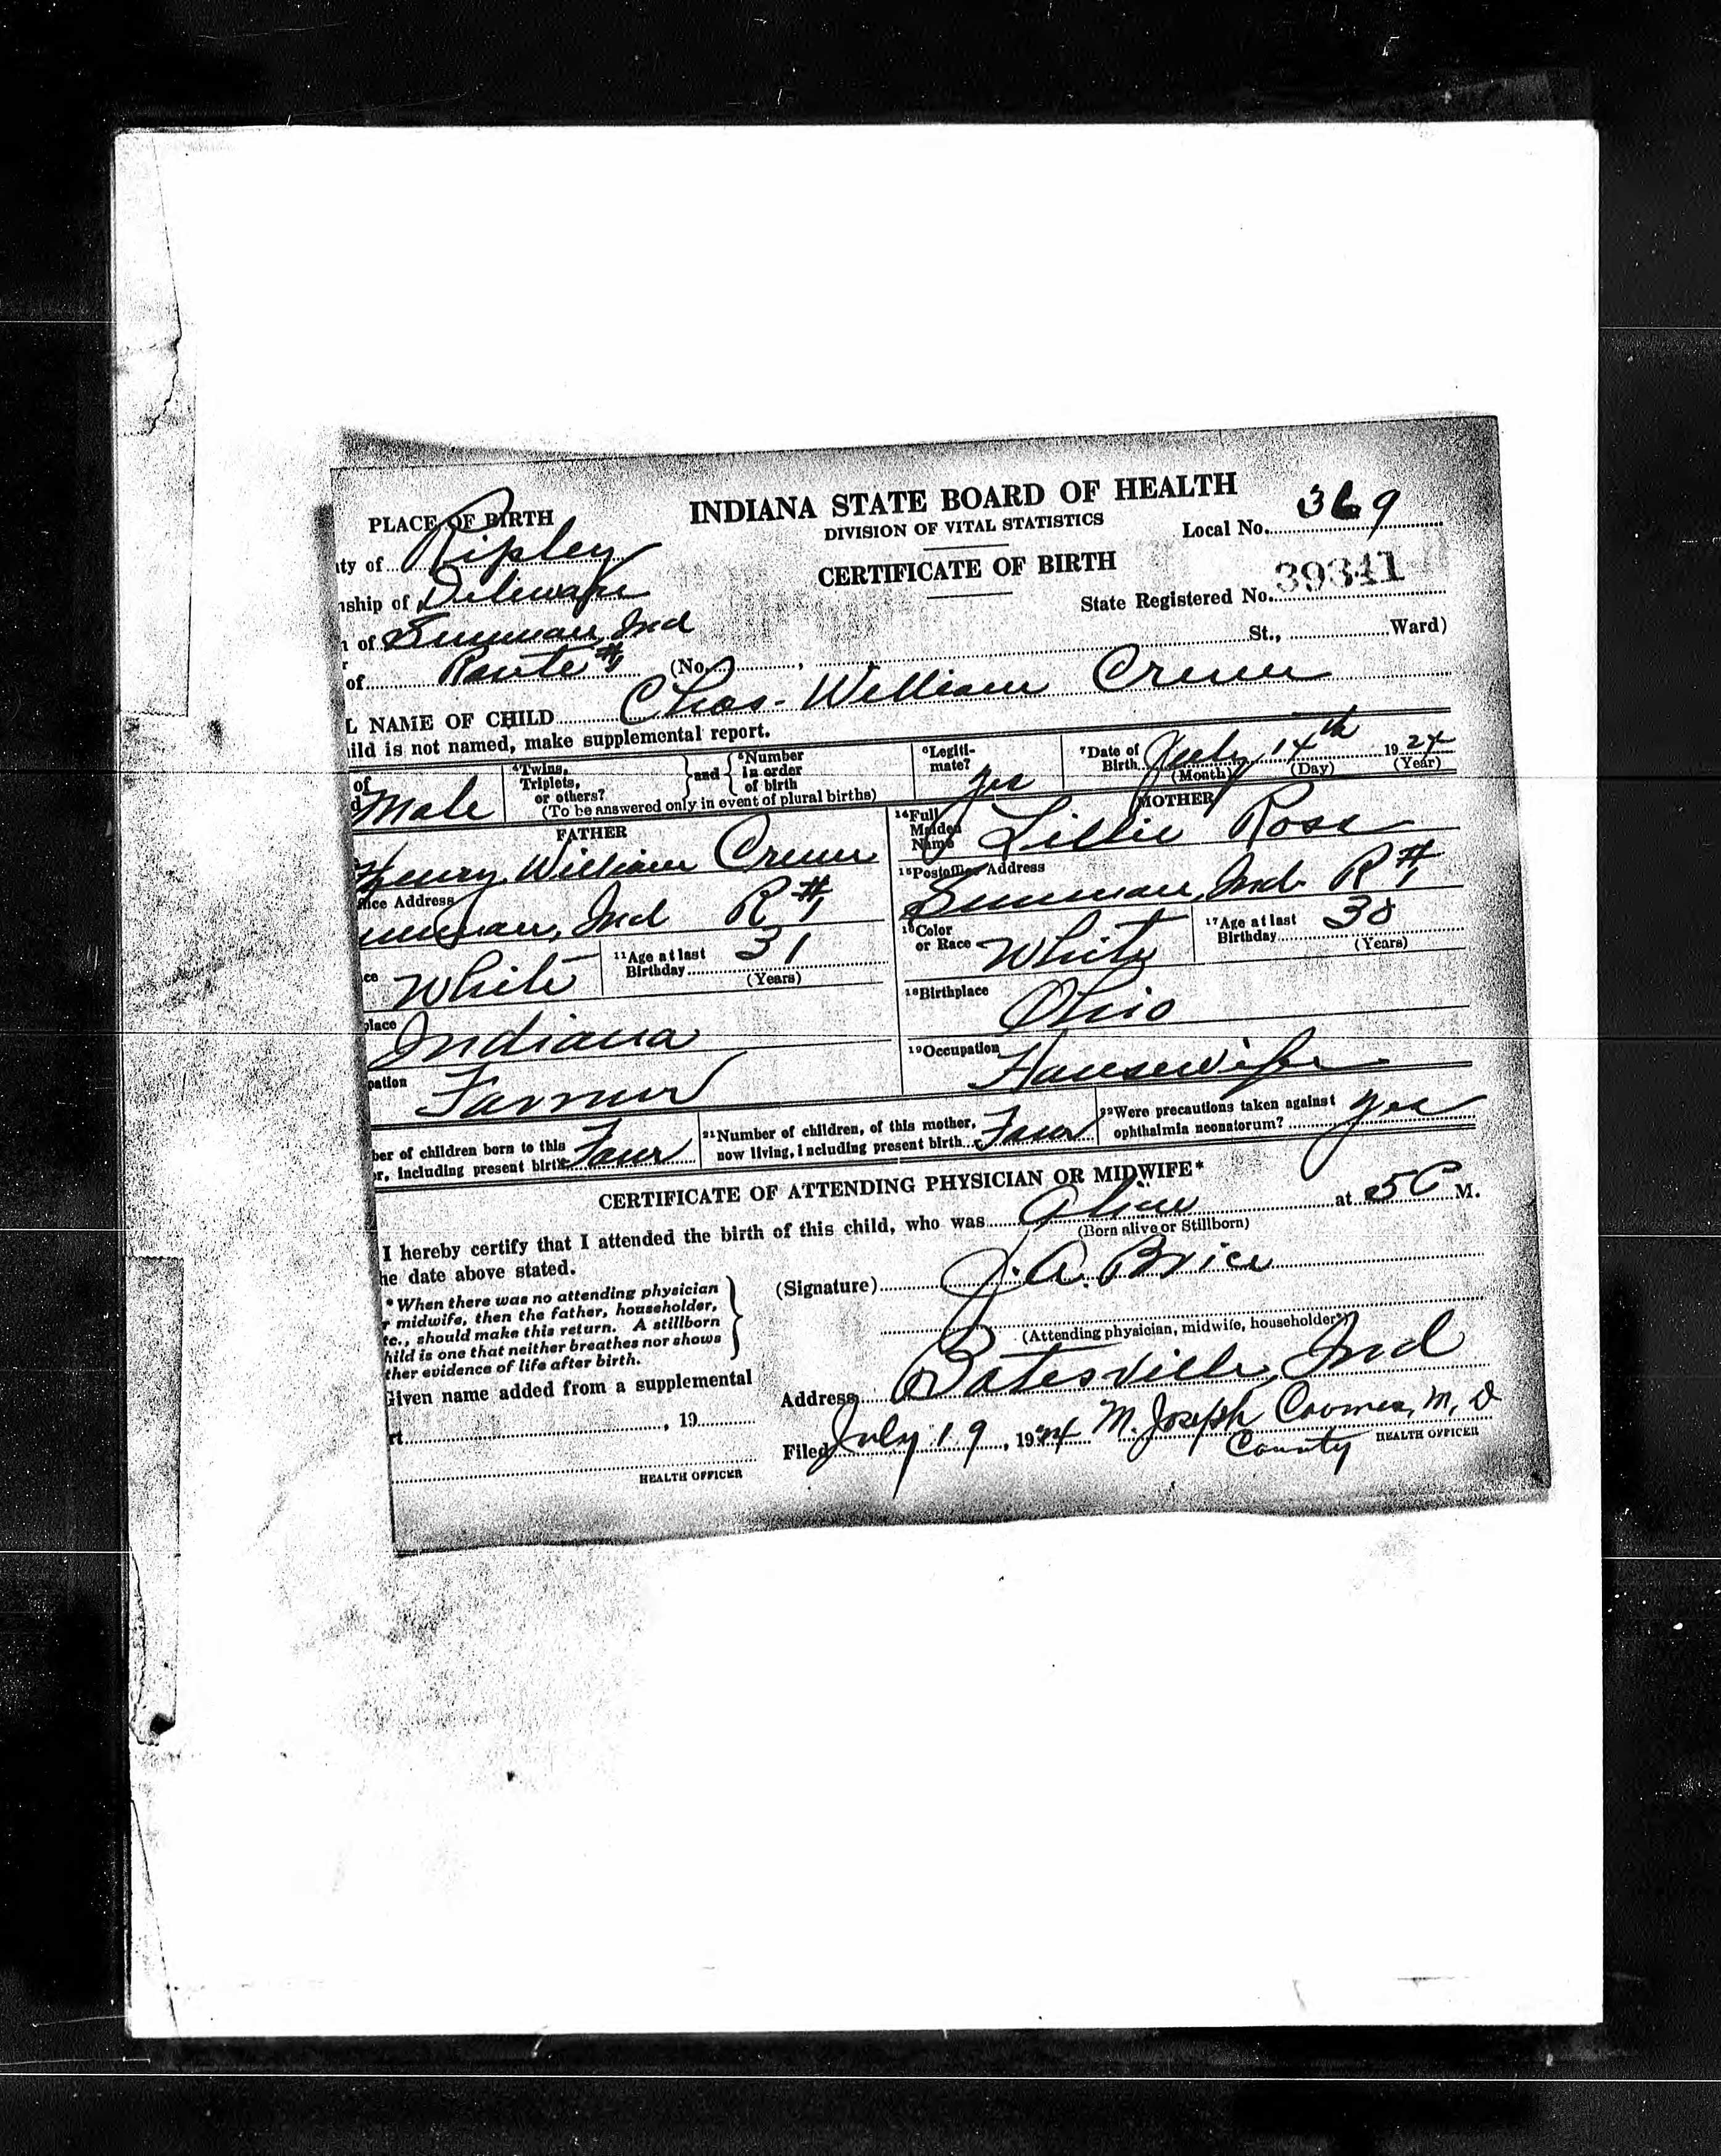 INDIANA STATE BOARD OF HEALTH
DIVISION OF VITAL STATISTICS
CERTIFICATE OF BIRTH
Local No. 369
State Registered No. 39341
PLACE OF BIRTH
nty of Ripley
nship of
n of Sunman, Ind
of Route #1 (No. , St., Ward)
L NAME OF CHILD Chas. William
ild is not named, make supplemental report.
of
d Male
4 Twins, Triplets, or others? and 5 Number in order of birth
(To be answered only in event of plural births)
6 Legiti-mate? yes
7 Date of Birth July 14th 1924
(Month) (Day) (Year)
FATHER
Henry William
ffice Address
unman, Ind R#1
ce White
11 Age at last Birthday 31
(Years)
place Indiana
pation Farmer
MOTHER
14 Full Maiden Name Lillie Rosa
15 Postoffice Address
Sunman, Ind. R#1
16 Color or Race White
17 Age at last Birthday 38
(Years)
18 Birthplace Ohio
19 Occupation Housewife
ber of children born to this
r, including present birth Four
21 Number of children, of this mother,
now living, including present birth Four
22 Were precautions taken against
ophthalmia neonatorum? yes
CERTIFICATE OF ATTENDING PHYSICIAN OR MIDWIFE*
I hereby certify that I attended the birth of this child, who was Alive at 5 M.
(Born alive or Stillborn)
he date above stated.
* When there was no attending physician
r midwife, then the father, householder,
tc., should make this return. A stillborn
hild is one that neither breathes nor shows
ther evidence of life after birth.
(Signature) J. A. Brice
(Attending physician, midwife, householder*)
Given name added from a supplemental
rt , 19
HEALTH OFFICER
Address Batesville, Ind
Filed July 19, 1924 M. Joseph Coomes, M. D
County HEALTH OFFICER